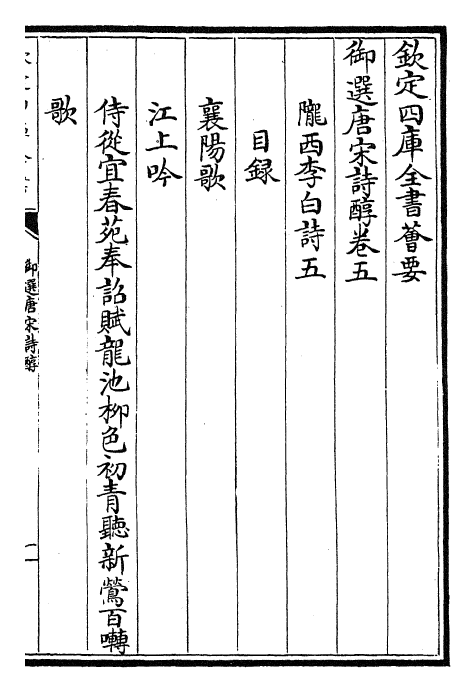 欽定四庫全書薈要
御選唐宋詩醇卷五
隴西李白詩五
目録
襄陽歌
江上吟
侍從宜春苑奉詔賦龍池柳色初青聽新鶯百囀
歌
御選唐宋詩醇
一